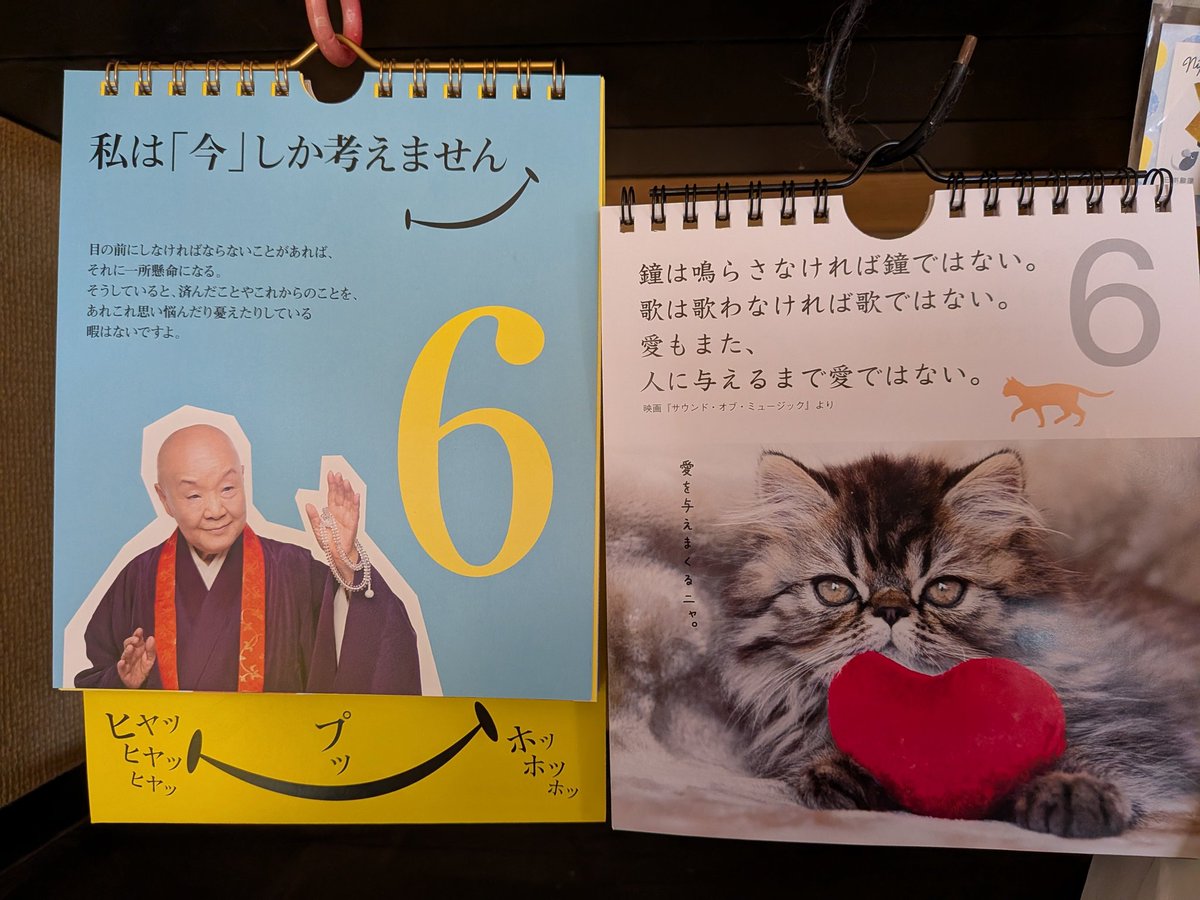 私は「今」しか考えません
目の前にしなければならないことがあれば、
それに一所懸命になる。
そうしていると、済んだことやこれからのことを、
あれこれ思い悩んだり憂えたりしている
暇はないですよ。
6
ヒヤッ
ヒヤッ
ヒヤッ
プッ
ホッ
ホッ
ホッ
鐘は鳴らさなければ鐘ではない。
歌は歌わなければ歌ではない。
愛もまた、
人に与えるまで愛ではない。
映画『サウンド・オブ・ミュージック』より
6
愛を与えまくるニャ。